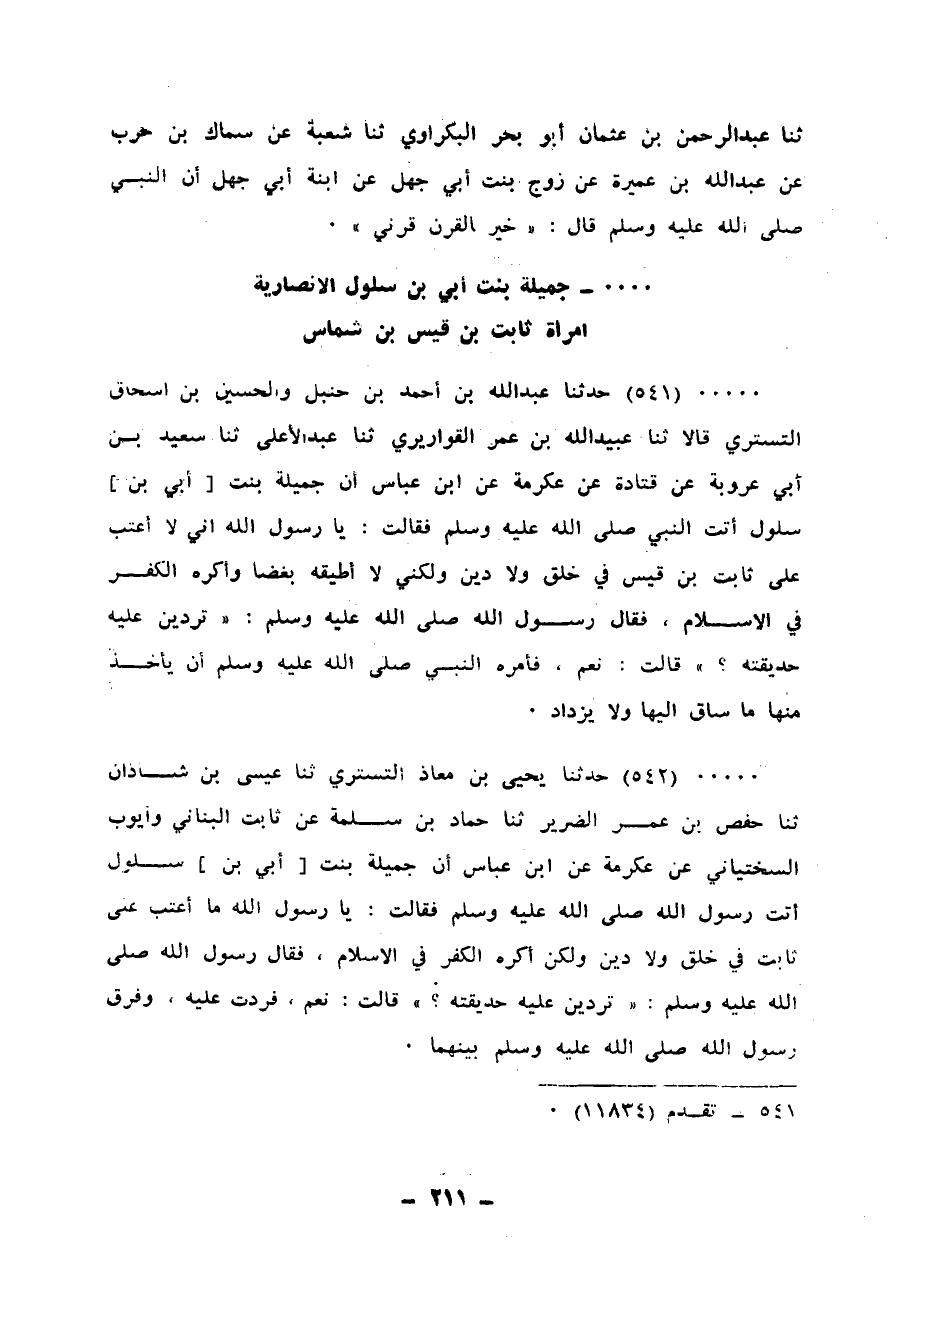 ثنا عبدالرحمن بن عثمان أبو بحر البكراوي ثنا شعبة عن سماك بن حرب
عن عبدالله بن عميرة عن زوج بنت أبي جهل عن ابنة أبي جهل أن النبي
صلى الله عليه وسلم قال : « خير القرن قرني » ٠
٠٠٠٠ ـ جميلة بنت أبي بن سلول الانصارية
امراة ثابت بن قيس بن شماس
٠٠٠٠٠ (٥٤١) حدثنا عبدالله بن أحمد بن حنبل والحسين بن اسحاق
التستري قالا ثنا عبيدالله بن عمر القواريري ثنا عبدالأعلى ثنا سعيد بن
أبي عروبة عن قتادة عن عكرمة عن ابن عباس أن جميلة بنت [ أبي بن ]
سلول أتت النبي صلى الله عليه وسلم فقالت : يا رسول الله اني لا أعتب
على ثابت بن قيس في خلق ولا دين ولكني لا أطيقه بغضا وأكره الكفر
في الاسلام ، فقال رسول الله صلى الله عليه وسلم : « تردين عليه
حديقته ؟ » قالت : نعم ، فأمره النبي صلى الله عليه وسلم أن يأخذ
منها ما ساق اليها ولا يزداد ٠
٠٠٠٠٠ (٥٤٢) حدثنا يحيى بن معاذ التستري ثنا عيسى بن شاذان
ثنا حفص بن عمر الضرير ثنا حماد بن سلمة عن ثابت البناني وأيوب
السختياني عن عكرمة عن ابن عباس أن جميلة بنت [ أبي بن ] سلول
أتت رسول الله صلى الله عليه وسلم فقالت : يا رسول الله ما أعتب على
ثابت في خلق ولا دين ولكن أكره الكفر في الاسلام ، فقال رسول الله صلى
الله عليه وسلم : « تردين عليه حديقته ؟ » قالت : نعم ، فردت عليه ، وفرق
رسول الله صلى الله عليه وسلم بينهما ٠
٥٤١ ـ تقدم (١١٨٣٤) ٠
ـ ٢١١ ـ